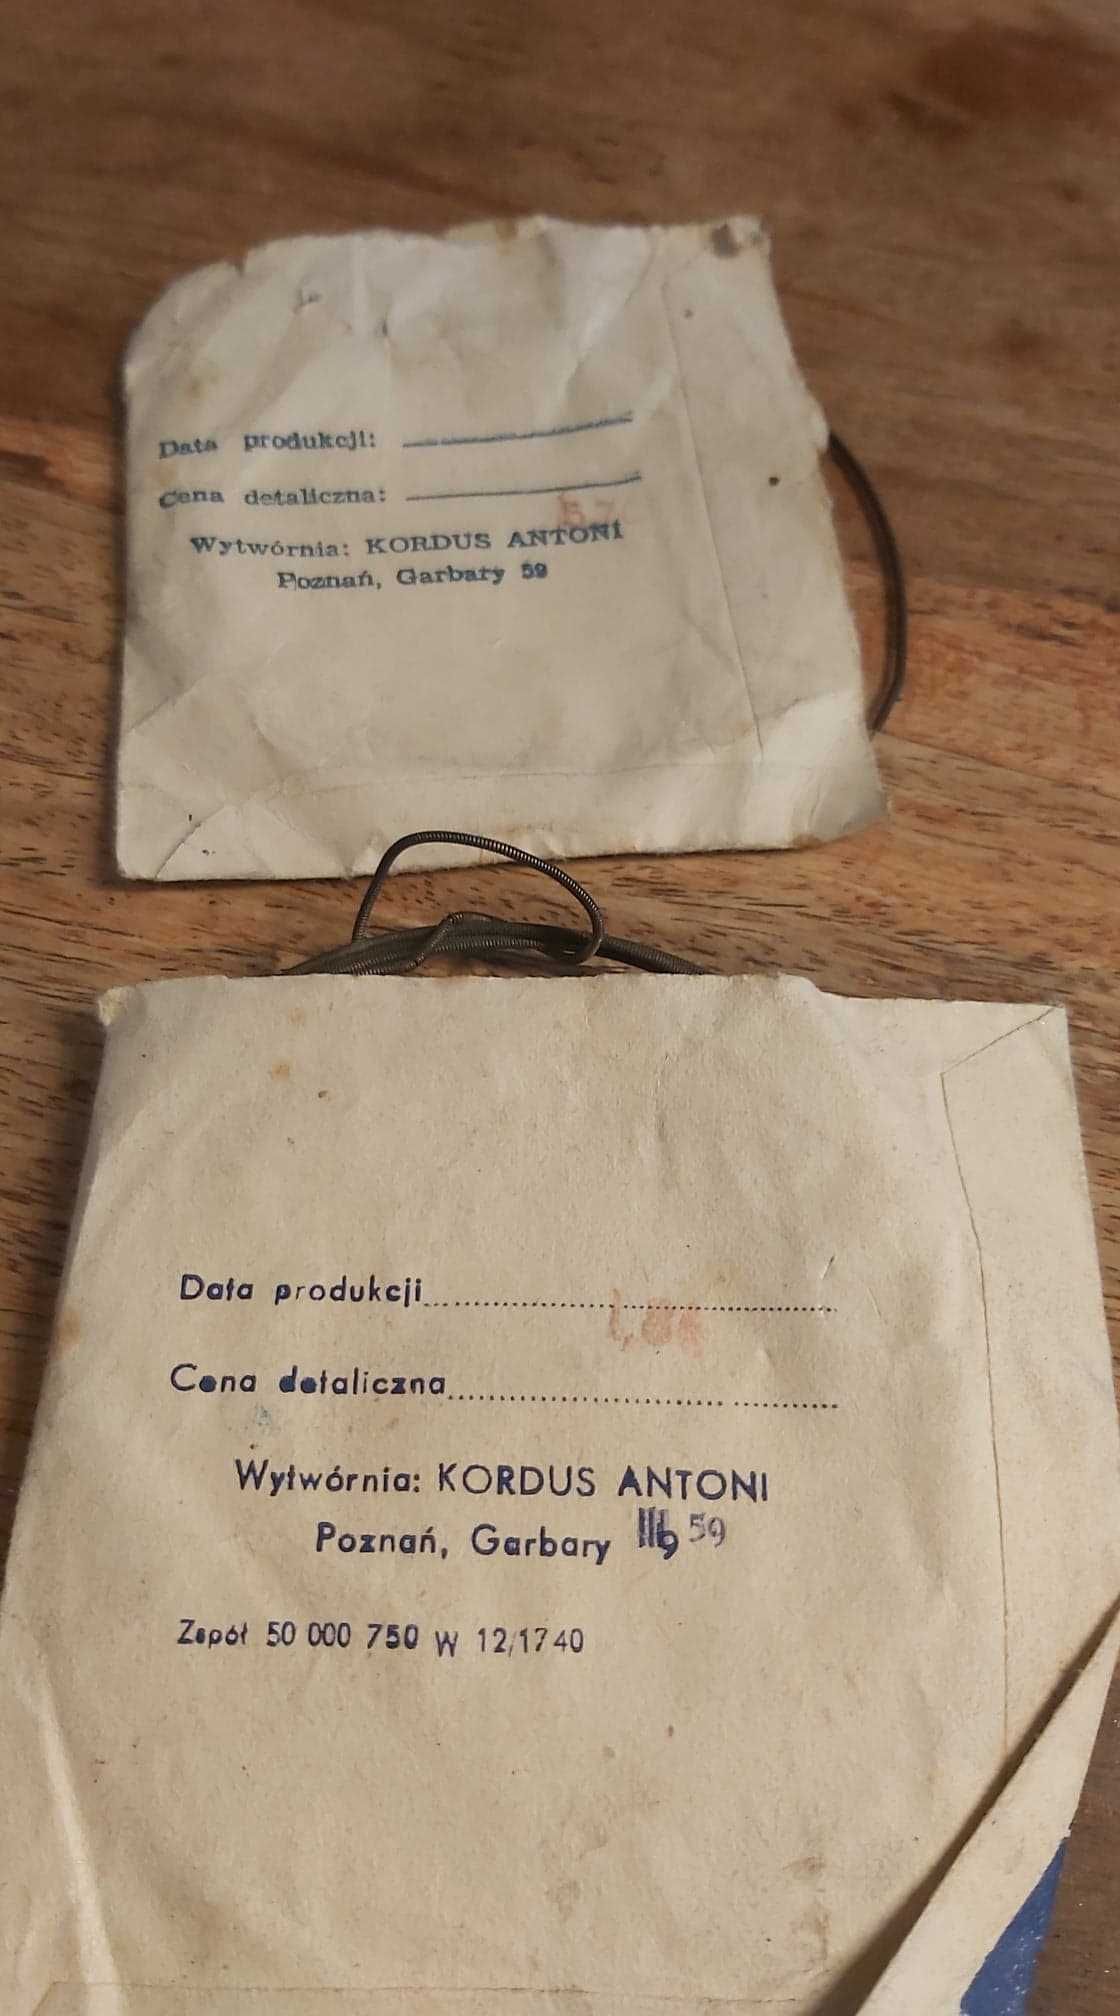 Data produkcji:
Cena detaliczna:
Wytwórnia: KORDUS ANTONI
Poznań, Garbary 59
Data produkcji
Cena detaliczna
Wytwórnia: KORDUS ANTONI
Poznań, Garbary 59
Zspół 50 000 750 W 12/1740